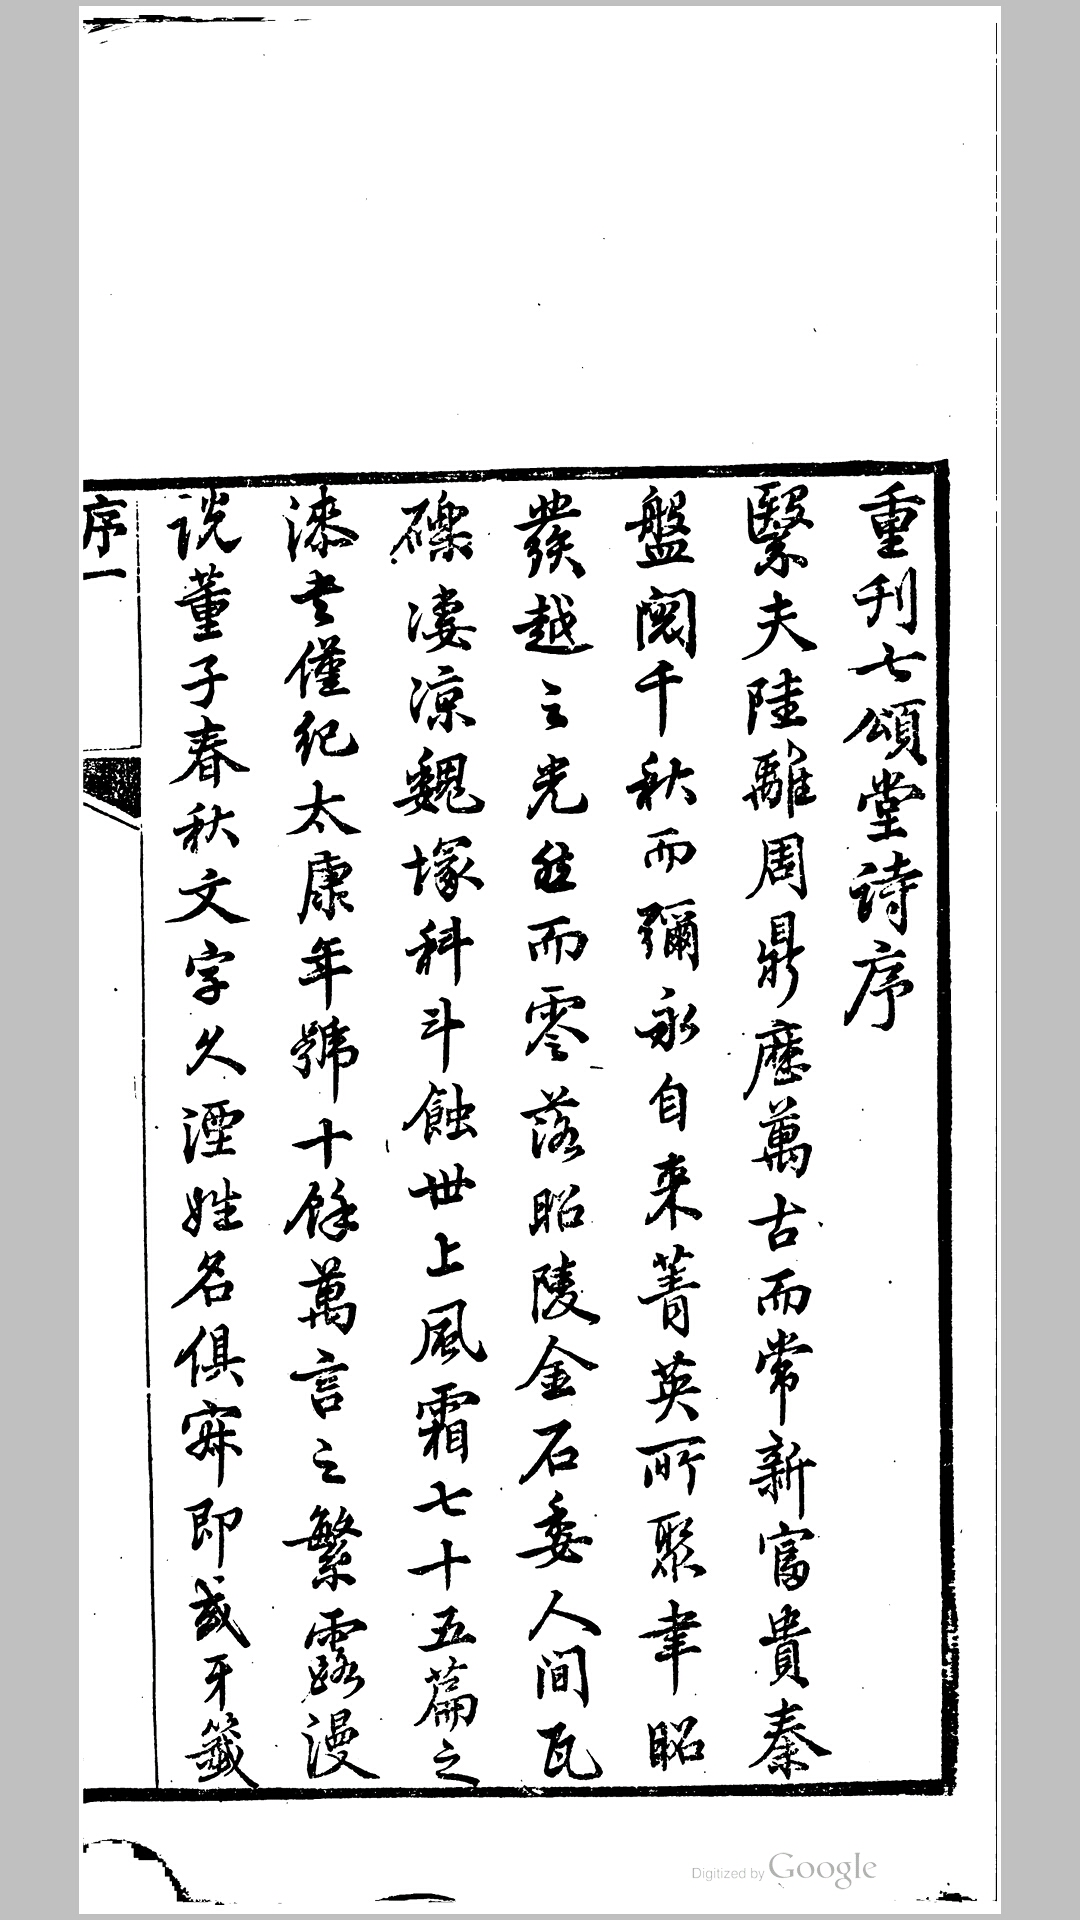 重刊七頌堂詩序
繄夫陸離周鼎歷萬古而常新富貴秦
盤閱千秋而彌永自來菁英所聚聿昭
發越之光然而零落昭陵金石委人間瓦
礫凄涼魏塚科斗蝕世上風霜七十五篇之
漆書僅紀太康年號十餘萬言之繁露漫
說董子春秋文字久湮姓名俱寂即或牙籤
序一
Digitized by Google